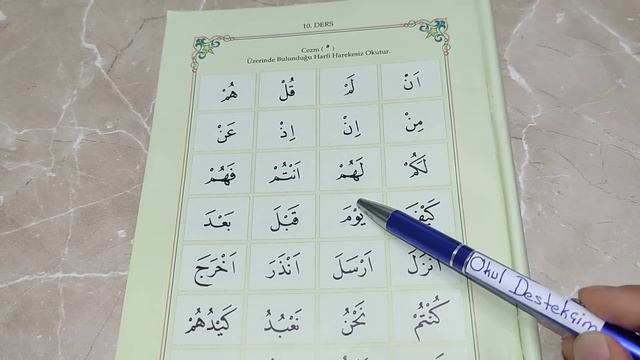 10. DERS
Cezm ( ْ )
Üzerinde Bulunduğu Harfi Harekesiz Okutur.
اَنْ لَمْ قُلْ هُمْ
مِنْ اِنْ اِذْ عَنْ
لَكُمْ لَهُمْ اَنْتُمْ فَهُمْ
كَيْفَ يَوْمَ قَبْلَ بَعْدَ
اَنْزَلَ اَرْسَلَ اَنْذَرَ اَخْرَجَ
كُنْتُمْ نَحْنُ نَعْبُدُ كَيْدُهُمْ
Okul Destekçim